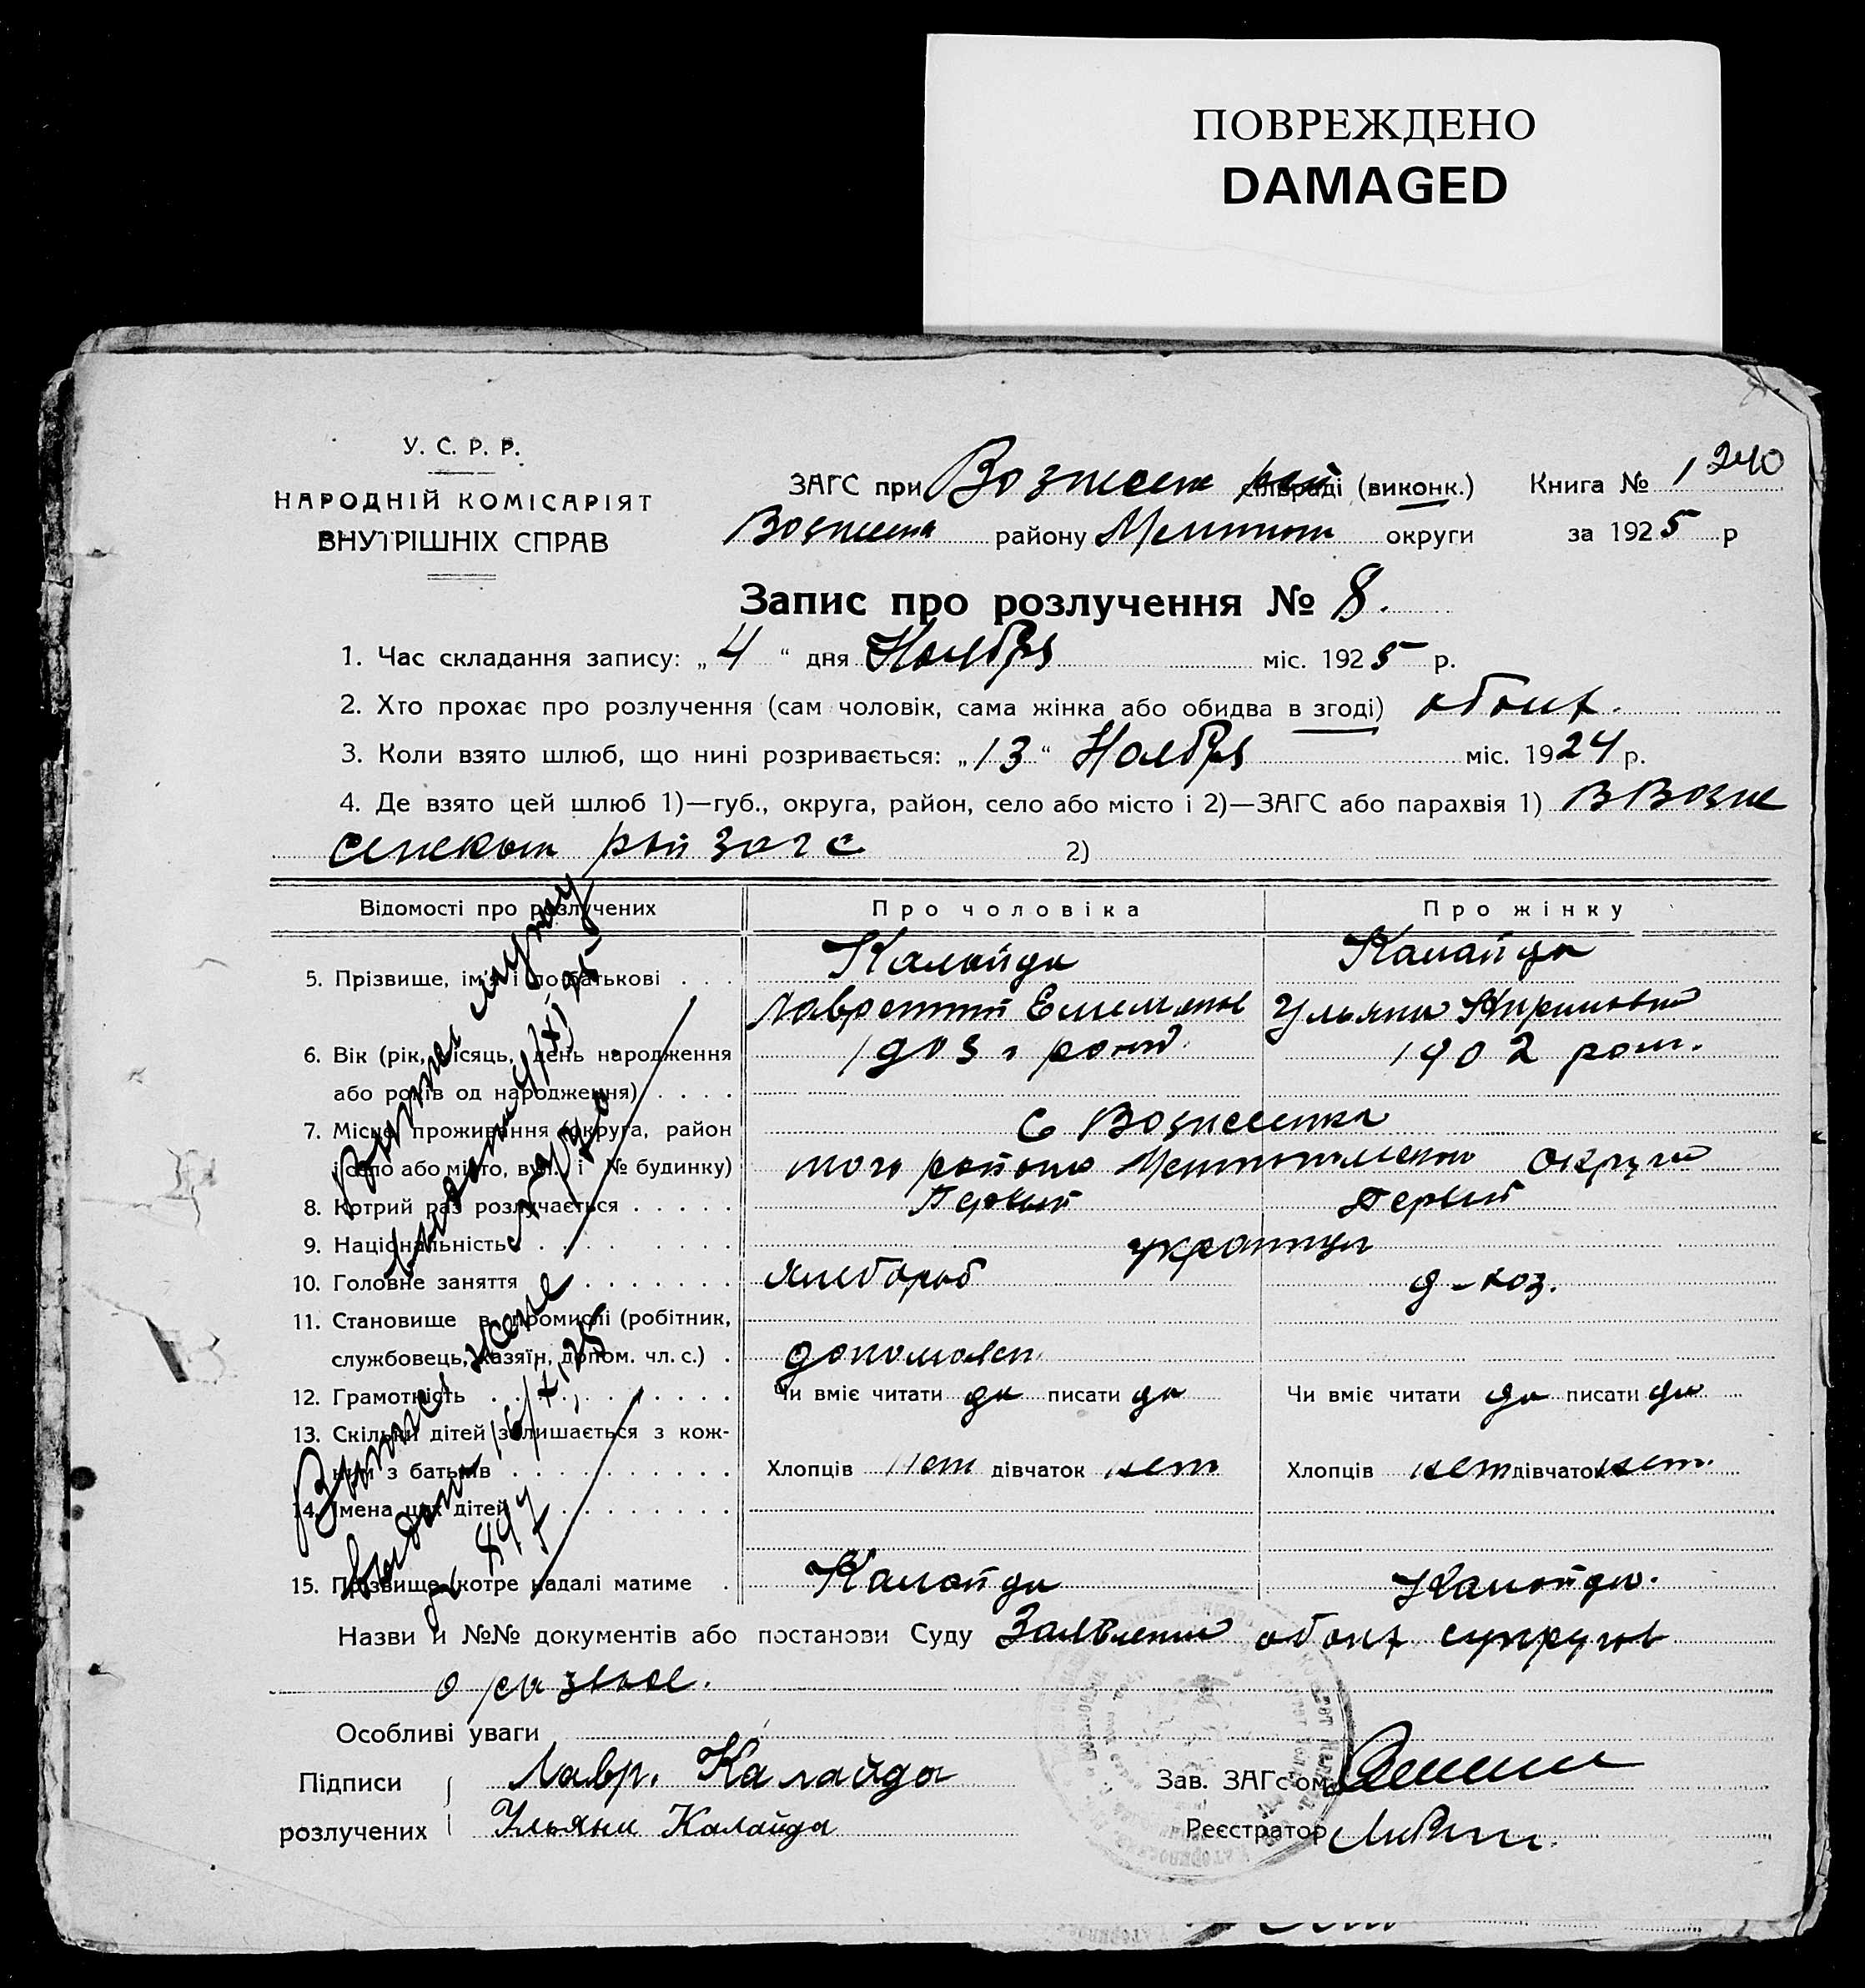 ПОВРЕЖДЕНО
DAMAGED
У. С. Р. Р.
НАРОДНІЙ КОМІСАРІЯТ
ВНУТРІШНІХ СПРАВ
ЗАГС при Вознесен рай сільраді (виконк.) Книга № 1 240
Вознесен району Мелитоп округи за 1925 р
Запис про розлучення № 8.
1. Час складання запису: „4“ дня Ноября міс. 1925 р.
2. Хто прохає про розлучення (сам чоловік, сама жінка або обидва в згоді) обоих.
3. Коли взято шлюб, що нині розривається: „13“ Ноября міс. 1924 р.
4. Де взято цей шлюб 1)—губ., округа, район, село або місто і 2)—ЗАГС або парахвія 1) В Возне
сенском рай загс 2)
Відомості про розлучених Про чоловіка Про жінку
5. Прізвище, ім'я і по батькові . . . Калайда Калайда
Лаврентий Емельянов Ульяна
6. Вік (рік, місяць, день народження 1903 г рожд. 1902 рож.
або років од народження) . . . .
7. Місце проживання (округа, район С Вознесенка
і село або місто, вул. і № будинку) того района Мелитопольской округи
8. Котрий раз розлучається . . . . . Первый Первый
9. Національність . . . . . . . . украинцы
10. Головне заняття . . . . . . . хлебороб д-хоз.
11. Становище в промислі (робітник,
службовець, хазяїн, допом. чл. с.) . допомажен
12. Грамотність . . . . . . . . . . Чи вміє читати да писати да Чи вміє читати да писати да
13. Скільки дітей залишається з кож-
ним з батьків . . . . . . . . . . Хлопців нет дівчаток нет Хлопців нет дівчаток нет
14. Імена цих дітей . . . . . . . . .
15. Прізвище, котре надалі матиме . Калайда Калайда.
Назви й №№ документів або постанови Суду Заявление обоих супругов
о разводе.
Особливі уваги
Підписи Лавр. Калайда Зав. ЗАГс'ом
розлучених Ульяна Калайда Реєстратор
Выпись мужу
выдана 4/XI 25
Выпись жене
выдана 16/X, 25
№ 897